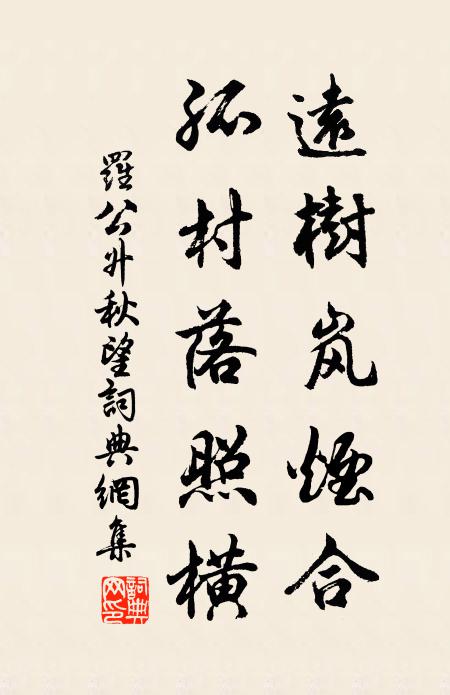 遠樹岚煙合
孤村落照橫
羅公升秋望詞典網集
詞典网印